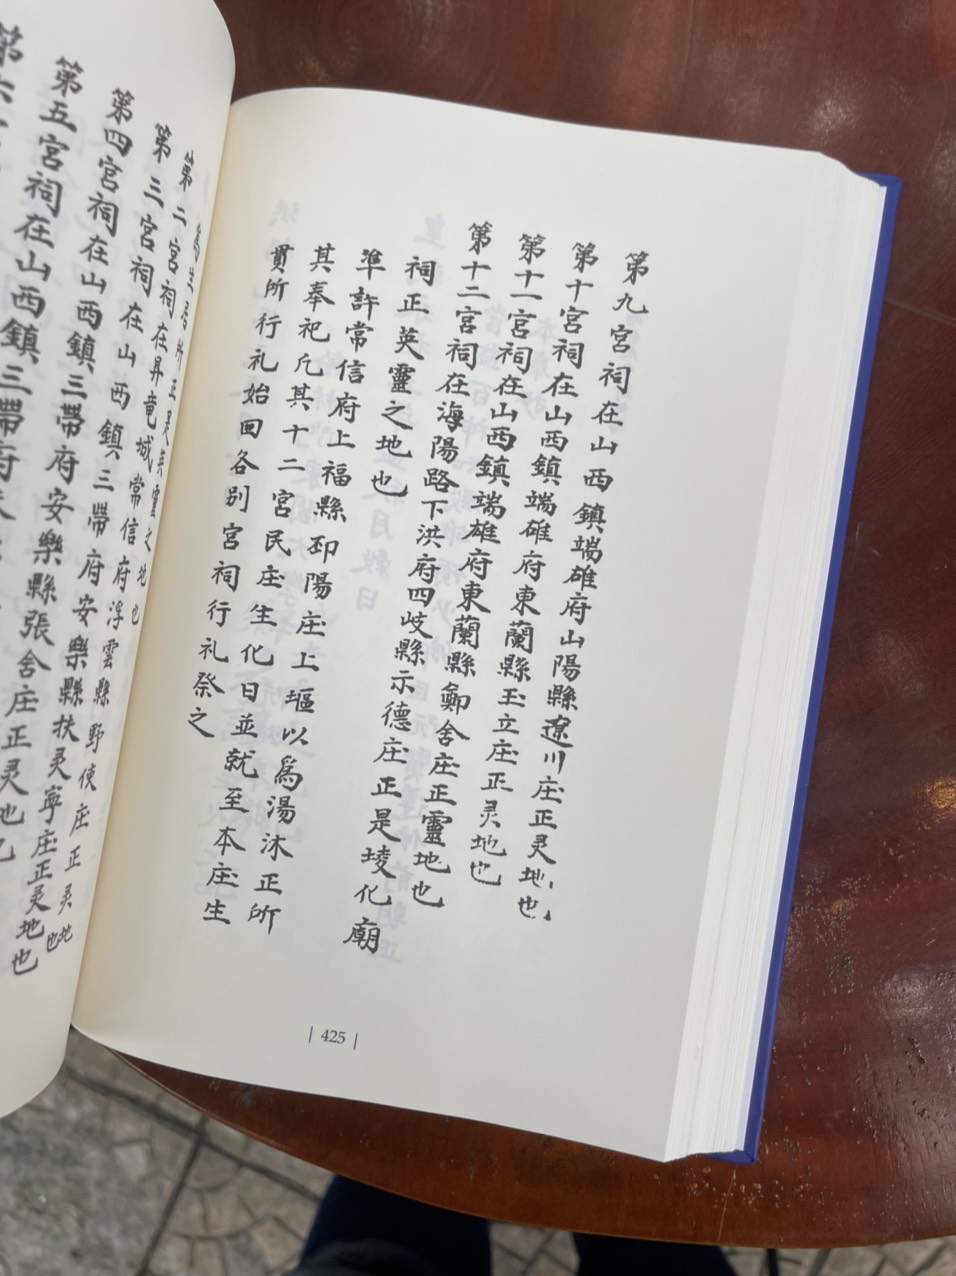 第九宮祠在山西鎮端雄府山陽縣遼川庄正灵地也
第十宮祠在山西鎮端雄府東蘭縣玉立庄正灵地也
第十一宮祠在山西鎮端雄府東蘭縣鄭舍庄正靈地也
第十二宮祠在海陽路下洪府四岐縣示德庄正是埮化廟
祠正英靈之地也
準許常信府上福縣邳陽庄上堰以爲湯沐正所
其奉祀凢其十二宮民庄生化日並就至本庄生
貫所行礼始回各别宮祠行礼祭之
425
爲生居所正是英靈之地也
第二宮祠在昇竜城常信府浮雲縣野使庄正灵地也
第三宮祠在山西鎮三帶府安樂縣扶灵寧庄正灵地也
第四宮祠在山西鎮三帶府安樂縣張舍庄正灵地也
第五宮祠在山西鎮三帶府